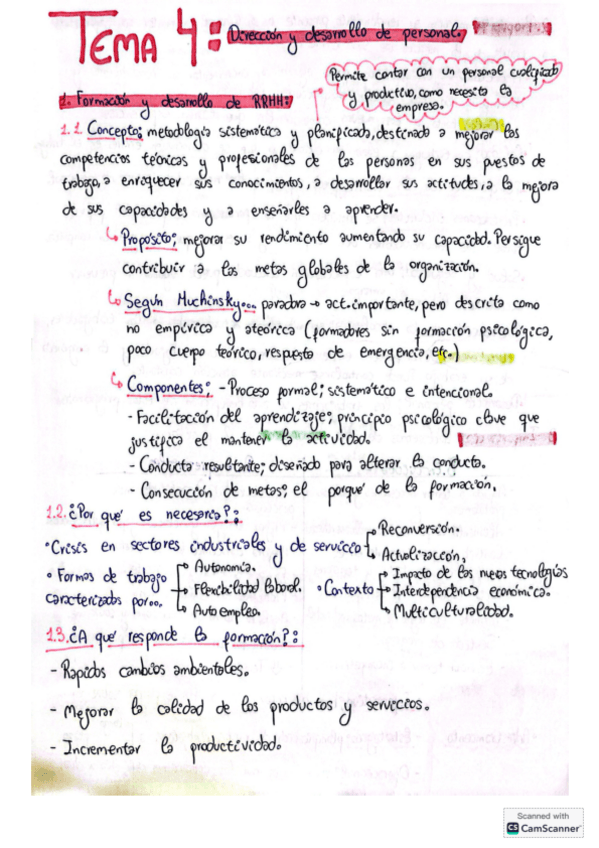 TEMA 4: Dirección y desarrollo de personal.
Permite contar con un personal cualificado
y productivo, como necesita la
empresa.
1. Formación y desarrollo de RRHH:
1.1. Concepto: metodología sistemática y planificada, destinado a mejorar las
competencias técnicas y profesionales de las personas en sus puestos de
trabajo, a enriquecer sus conocimientos, a desarrollar sus actitudes, a la mejora
de sus capacidades y a enseñarles a aprender.
↳ Propósito: mejorar su rendimiento aumentando su capacidad. Persigue
contribuir a las metas globales de la organización.
↳ Según Muchinsky... paradoja → act. importante, pero descrita como
no empírica y ateórica (formadores sin formación psicológica,
poco cuerpo teórico, respuesta de emergencia, etc.)
↳ Componentes: - Proceso formal; sistemático e intencional.
- Facilitación del aprendizaje; principio psicológico clave que
justifica el mantener la actividad.
- Conducta resultante; diseñado para alterar la conducta.
- Consecución de metas; el porqué de la formación.
1.2. ¿Por qué es necesaria?:
• Crisis en sectores industriales y de servicio
Reconversión.
Actualización.
• Formas de trabajo
caracterizados por...
Autonomía.
Flexibilidad laboral.
Autoempleo.
• Contexto
Impacto de las nuevas tecnologías
Interdependencia económica.
Multiculturalidad.
1.3. ¿A qué responde la formación?:
- Rapidos cambios ambientales.
- Mejorar la calidad de los productos y servicios.
- Incrementar la productividad.
Scanned with
CS CamScanner